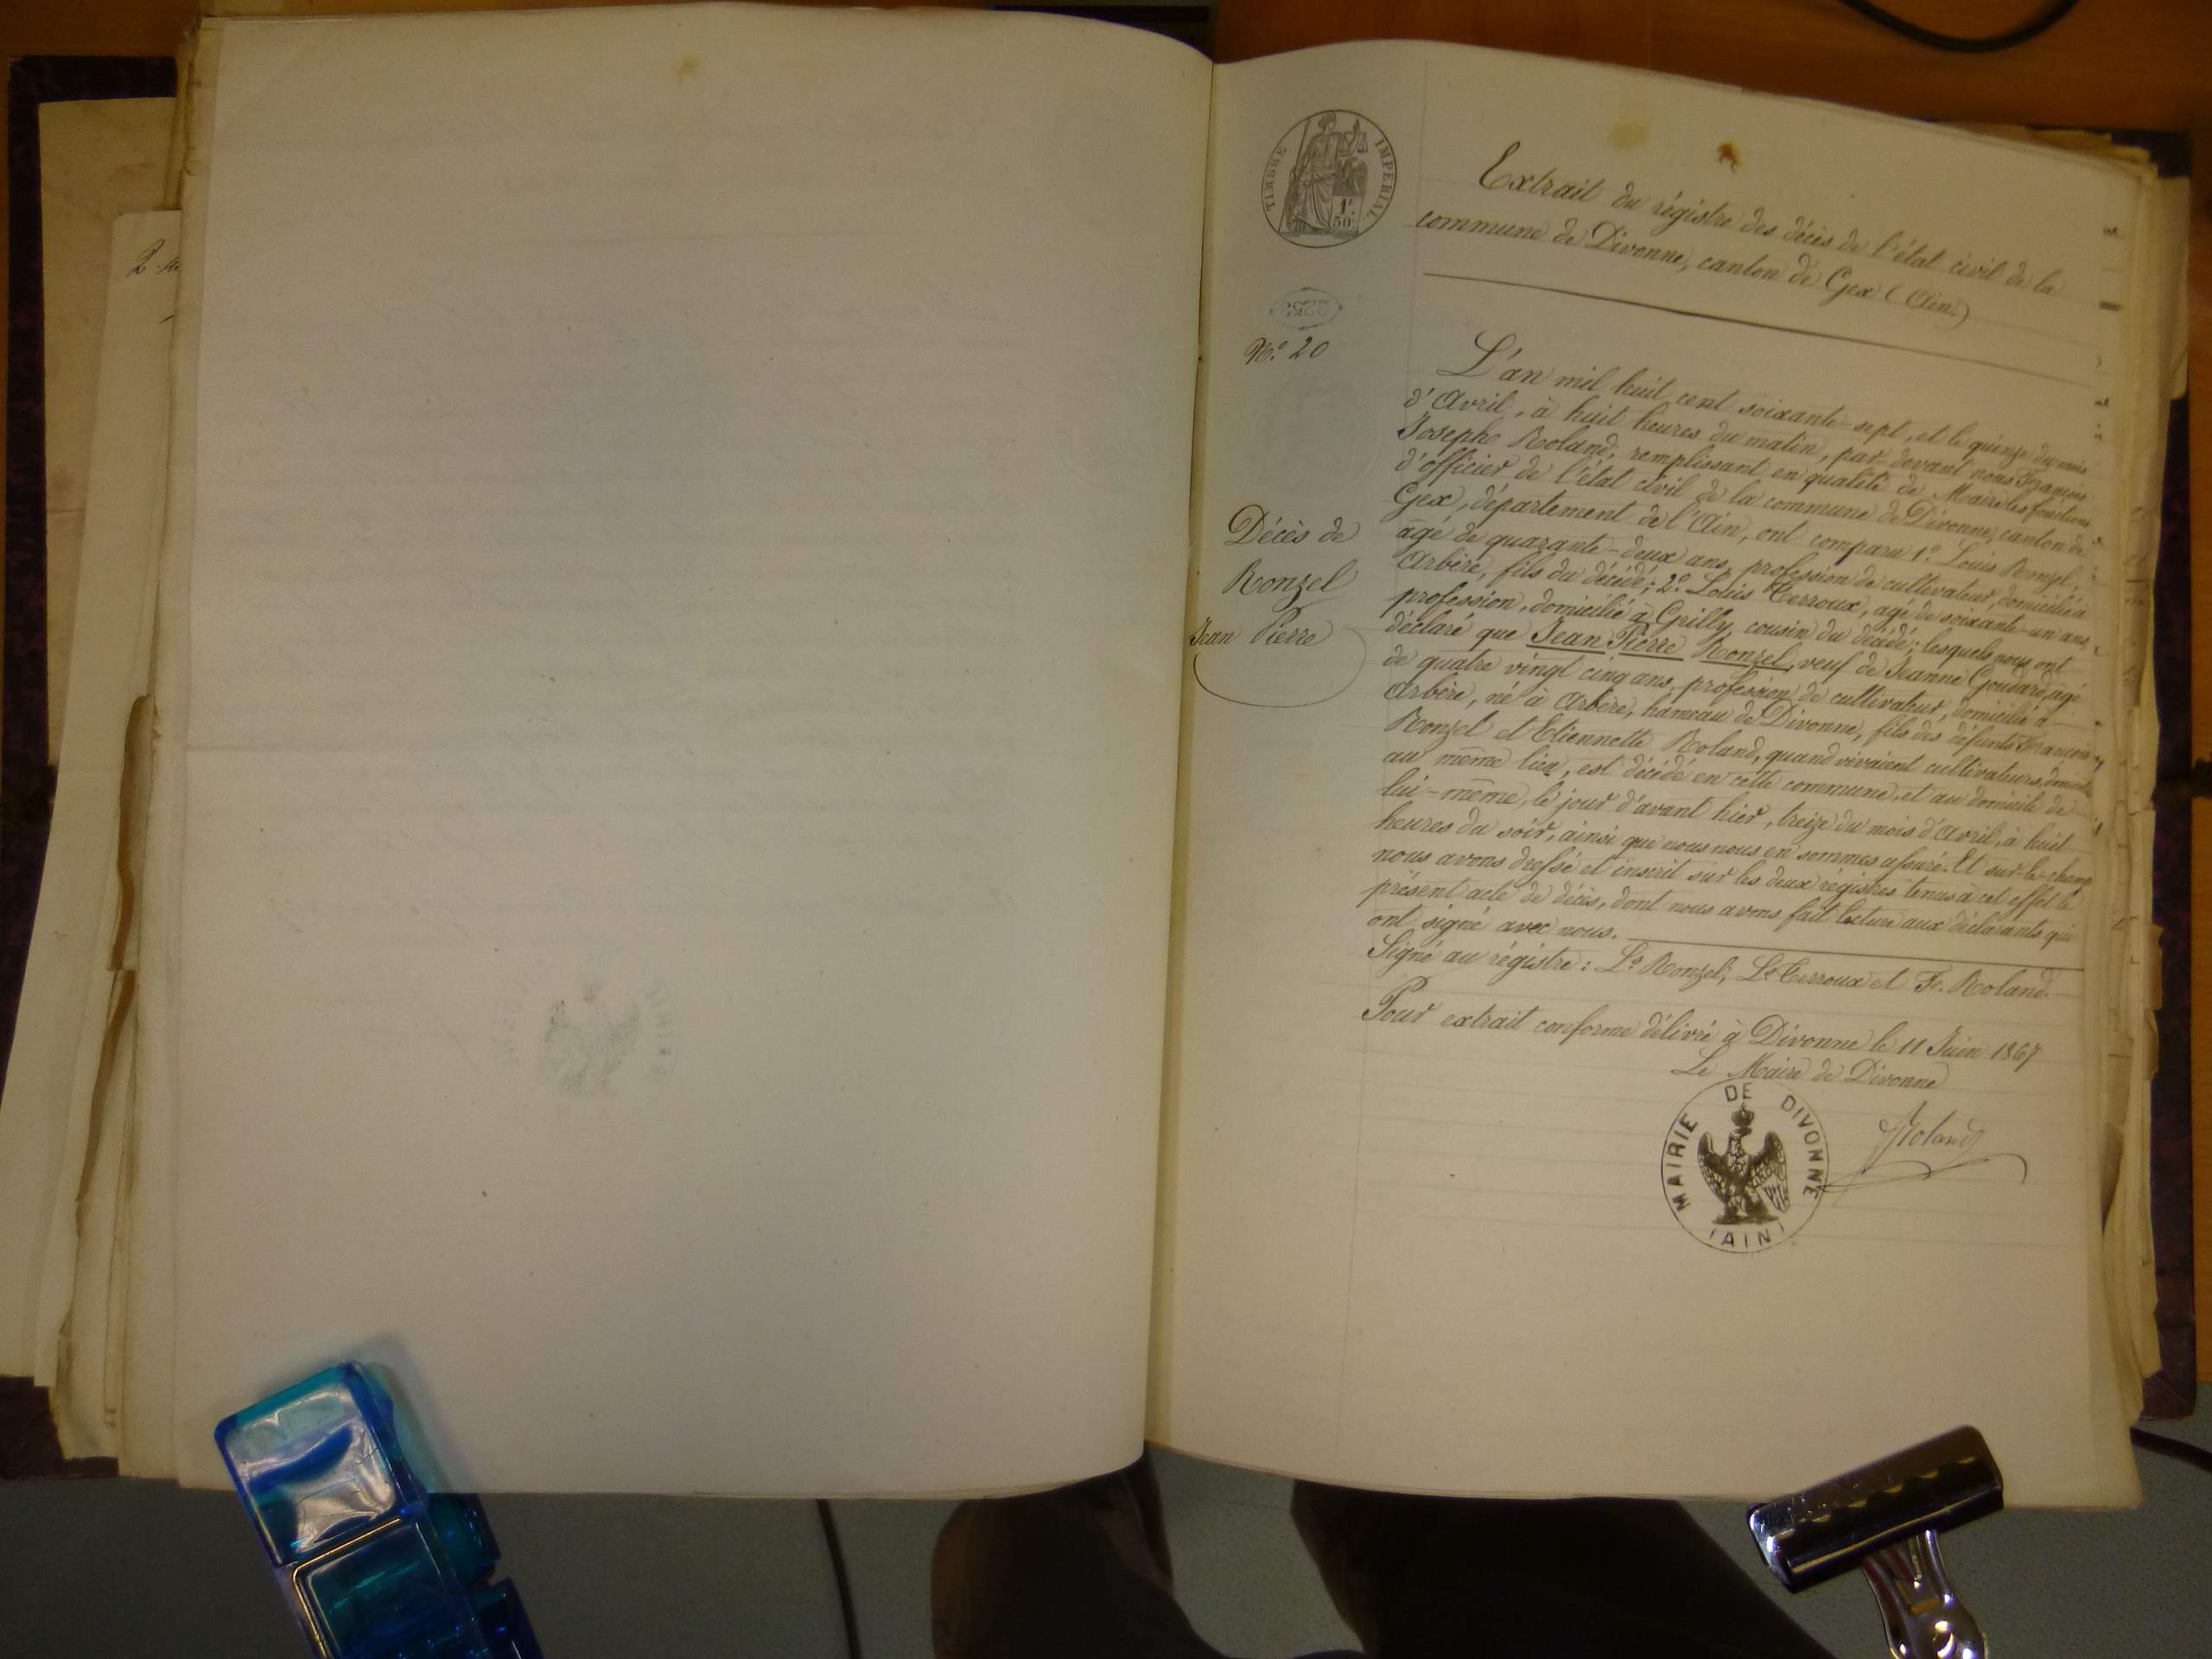 TIMBRE IMPERIAL
1F 50c
Extrait du régistre des décès de l'état civil de la
commune de Divonne, canton de Gex (Ain)
N.° 20
Décès de
Ronzel
Jean Pierre
L'an mil huit cent soixante-sept, et le quinze du mois
d'Avril, à huit heures du matin, par devant nous François
Joseph Roland, remplissant en qualité de Maire les fonctions
d'officier de l'état civil de la commune de Divonne, canton de
Gex, département de l'Ain, ont comparu 1.° Louis Ronzel,
âgé de quarante-deux ans, profession de cultivateur, domicilié à
Arbère, fils du décédé; 2.° Louis Terroux, agé de soixante-un ans,
profession, domicilié à Grilly, cousin du décédé; lesquels nous ont
déclaré que Jean Pierre Ronzel, veuf de Jeanne Goudard, agé
de quatre vingt cinq ans, profession de cultivateur, domicilié à
Arbère, né à Arbère, hameau de Divonne, fils des défunts François
Ronzel et Etiennette Roland, quand vivaient cultivateurs,
au même lieu, est décédé en cette commune, et au domicile de
lui-même, le jour d'avant hier, treize du mois d'Avril, à huit
heures du soir, ainsi que nous nous en sommes assuré. Et sur-le-champ
nous avons dressé et inscrit sur les deux régistres tenus à cet effet le
présent acte de décès, dont nous avons fait lecture aux déclarants qui
ont signé avec nous.
Signé au régistre: L.s Ronzel, L.s Terroux et F. Roland.
Pour extrait conforme délivré à Divonne le 11 Juin 1867
Le Maire de Divonne
Roland
MAIRIE DE DIVONNE
(AIN)